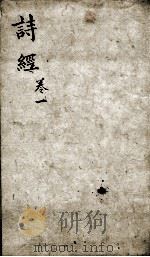 詩經
卷一
研狗
mtoou.info